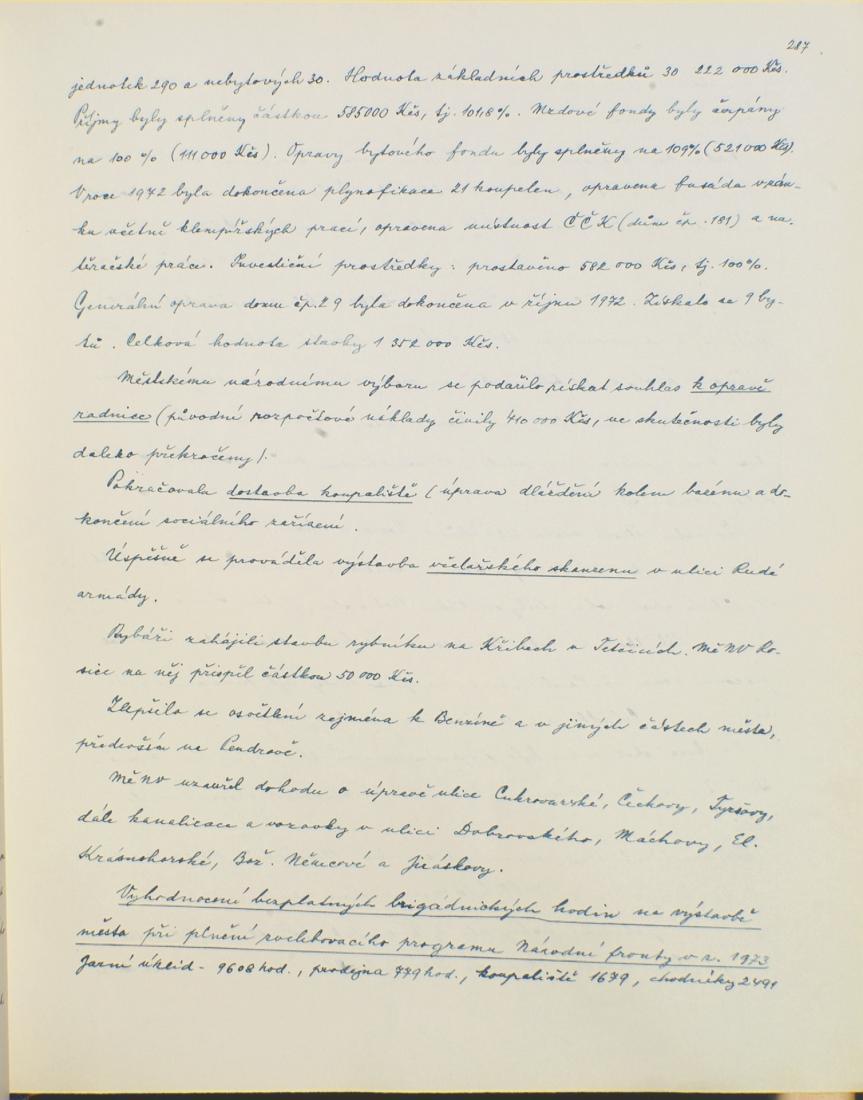 287
jednotek 290 a nebytových 30. Hodnota základních prostředků 30 222 000 Kčs.
Příjmy byly splněny částkou 585000 Kčs, tj. 101,8 %. Mzdové fondy byly čerpány
na 100 % (111 000 Kčs). Opravy bytového fondu byly splněny na 109% (521 000 Kčs).
V roce 1972 byla dokončena plynofikace 21 koupelen, opravena fasáda v zám-
ku včetně klempířských prací, opravena místnost ČČK (dům čp. 181) a na-
těračské práce. Investiční prostředky: prostavěno 582 000 Kčs, tj. 100%.
Generální oprava domu čp. 29 byla dokončena v říjnu 1972. Získalo se 9 by-
tů. Celková hodnota stavby 1 352 000 Kčs.
Městskému národnímu výboru se podařilo získat souhlas k opravě
radnice (původní rozpočtové náklady činily 410 000 Kčs, ve skutečnosti byly
daleko překročeny).
Pokračovala dostavba koupaliště (úprava dláždění kolem bazénu a do-
končení sociálního zařízení.
Úspěšně se prováděla výstavba včelařského skanzenu v ulici Rudé
armády.
Rybáři zahájili stavbu rybníka na Křibech v Tetčicích. MěNV Ro-
sice na něj přispěl částkou 50 000 Kčs.
Zlepšilo se osvětlení zejména k Benzině a v jiných částech města,
především na Pendrově.
MěNV uzavřel dohodu o úpravě ulice Cukrovarské, Čechovy, Tyršovy,
dále kanalizace a vozovky v ulici Dobrovského, Máchovy, El.
Krásnohorské, Bož. Němcové a Jiráskovy.
Vyhodnocení bezplatných brigádnických hodin na výstavbě
města při plnění zvelebovacího programu Národní fronty v r. 1973
Jarní úklid - 9608 hod., prodejna 779 hod., koupaliště 1679, chodníky 2491